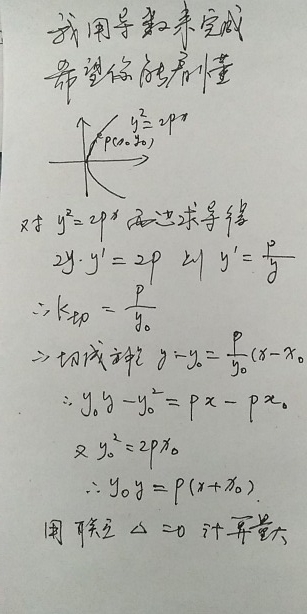 我用导数来完成
希望你能看懂
y²=2px
P(x₀,y₀)
对 y²=2px 两边求导得
2y·y'=2p 则 y'=p/y
∴k切=p/y₀
∴切线方程 y-y₀=p/y₀(x-x₀
∴y₀y-y₀²=px-px₀
又 y₀²=2px₀
∴y₀y=p(x+x₀)
用联立 △=0 计算量大